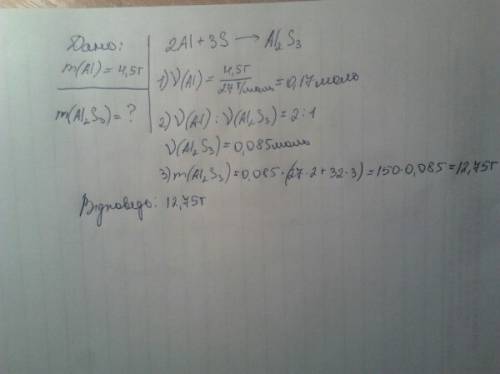 Дано:
m(Al) = 4,5г
m(Al₂S₃) = ?
2Al + 3S → Al₂S₃
1) ν(Al) = 4,5г / 27г/моль = 0,17моль
2) ν(Al) : ν(Al₂S₃) = 2 : 1
ν(Al₂S₃) = 0,085моль
3) m(Al₂S₃) = 0,085 · (27·2 + 32·3) = 150 · 0,085 = 12,75г
Відповедь: 12,75г